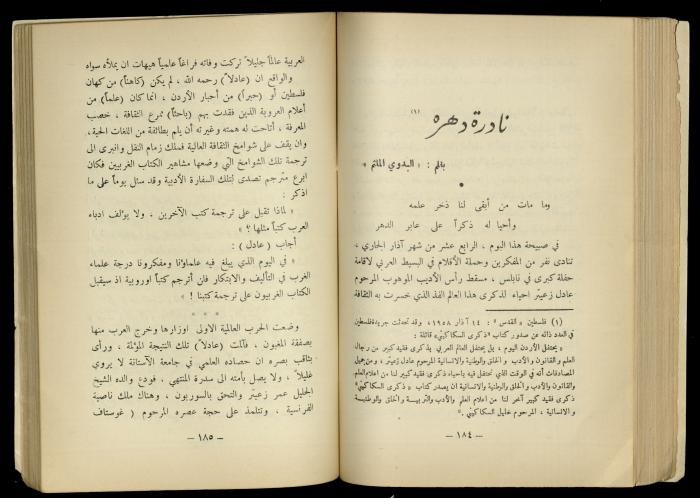 نادرة دهره (١)
بقلم : « البدوي الملثم »
وما مات من أبقى لنا ذخر علمه
وأحيا له ذكراً على عابر الدهر
في صبيحة هذا اليوم ، الرابع عشر من شهر آذار الجاري ،
تنادى نفر من المفكرين وحملة الأقلام في البسيط العربي لاقامة
حفلة كبرى في نابلس ، مسقط رأس الأديب الموهوب المرحوم
عادل زعيتر احياء لذكرى هذا العالم الفذ الذي خسرت به الثقافة
(١) فلسطين « القدس » : ١٤ آذار ١٩٥٨ ، وقد تحدثت جريدة فلسطين
في العدد ذاته عن صدور كتاب « ذكرى السكاكيني » قائلة :
« يحتفل الأردن اليوم ، بل يحتفل العالم العربي بذكرى فقيد كبير من رجال
العلم والقانون والأدب والخلق والوطنية والانسانية المرحوم عادل زعيتر ، ومن جميل
المصادفات أنه في الوقت الذي نحتفل فيه باحياء ذكرى فقيد كبير لنا من اعلام العلم
والقانون والأدب والخلق والوطنية والانسانية ان يصدر كتاب « ذكرى السكاكيني »
ذكرى فقيد كبير آخر لنا من اعلام العلم والأدب والتربية والخلق والوطنية
والانسانية ، المرحوم خليل السكاكيني » .
— ١٨٤ —
العربية عالماً جليلاً تركت وفاته فراغاً علمياً هيهات ان يملأه سواه
والواقع ان (عادلاً) رحمه الله ، لم يكن (كاهناً) من كهان
فلسطين أو (حبراً) من أحبار الأردن ، انما كان (علماً) من
أعلام العروبة الذين فقدت بهم (باحثاً) ممرع الثقافة ، خصب
المعرفة ، أتاحت له همته وغيرته أن يلم بطائفة من اللغات الحية ،
وان يقف على شوامخ الثقافة العالية فملك زمام النقل وانبرى الى
ترجمة تلك الشوامخ التي وضعها مشاهير الكتاب الغربيين فكان
ابرع مترجم تصدى لتلك السفارة الأدبية وقد سئل يوماً على ما
اذكر :
« لماذا تقبل على ترجمة كتب الآخرين ، ولا يؤلف ادباء
العرب كتباً مثلها ؟ »
أجاب (عادل) :
« في اليوم الذي يبلغ فيه علماؤنا ومفكرونا درجة علماء
الغرب في التأليف والابتكار فلن أترجم كتباً اوروبية اذ سيقبل
الكتاب الغربيون على ترجمة كتبنا ! »
وضعت الحرب العالمية الاولى اوزارها وخرج العرب منها
بصفقة المغبون ، فآلمت (عادلاً) تلك النتيجة المؤلمة ، ورأى
بثاقب بصره ان حصاده العلمي في جامعة الآستانة لا يروي
غليلاً ، ولا يصل بأمته الى سدرة المنتهى . فودع والده الشيخ
الجليل عمر زعيتر والتحق بالسوربون ، وهناك ملك ناصية
الفرنسية ، وتتلمذ على حجة عصره المرحوم (غوستاف
— ١٨٥ —